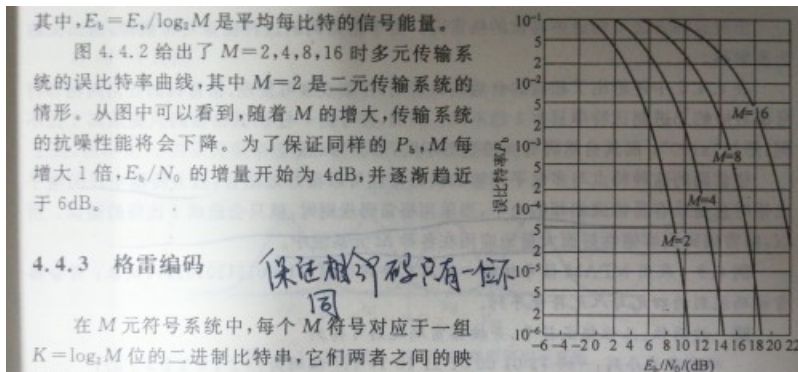 其中,E_b=E_s/log₂M是平均每比特的信号能量。
图4.4.2给出了M=2,4,8,16时多元传输系
统的误比特率曲线,其中M=2是二元传输系统的
情形。从图中可以看到,随着M的增大,传输系统
的抗噪性能将会下降。为了保证同样的P_b,M每
增大1倍,E_b/N₀的增量开始为4dB,并逐渐趋近
于6dB。
4.4.3 格雷编码
保证相邻码只有一位不
同
在M元符号系统中,每个M符号对应于一组
K=log₂M位的二进制比特串,它们两者之间的映
误比特率P_b
10⁻¹
5
2
10⁻²
5
2
10⁻³
5
2
10⁻⁴
5
2
10⁻⁵
5
2
10⁻⁶
M=16
M=8
M=4
M=2
-6 -4 -2 0 2 4 6 8 10 12 14 16 18 20 22
E_b/N₀/(dB)